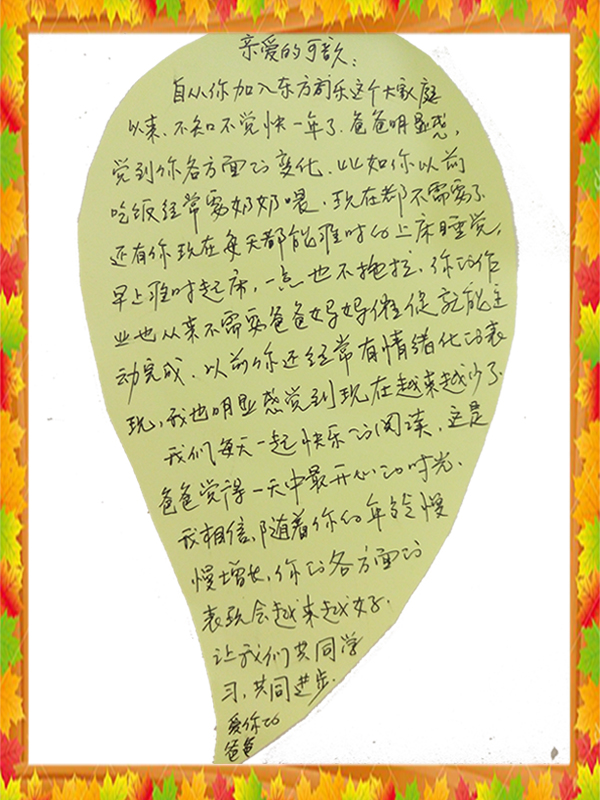 亲爱的可歆：
自从你加入东方前乐这个大家庭
以来，不知不觉快一年了．爸爸明显感，
觉到你各方面的变化．比如你以前
吃饭经常要奶奶喂，现在都不需要了
还有你现在每天都能准时的上床睡觉，
早上准时起床，一点也不拖拉．你的作
业也从来不需要爸爸妈妈催促就能主
动完成．以前你还经常有情绪化的表
现，我也明显感觉到现在越来越少了．
我们每天一起快乐的阅读，这是
爸爸觉得一天中最开心的时光．
我相信，随着你的年龄慢
慢增长，你的各方面的
表现会越来越好．
让我们共同学
习，共同进步．
爱你的
爸爸